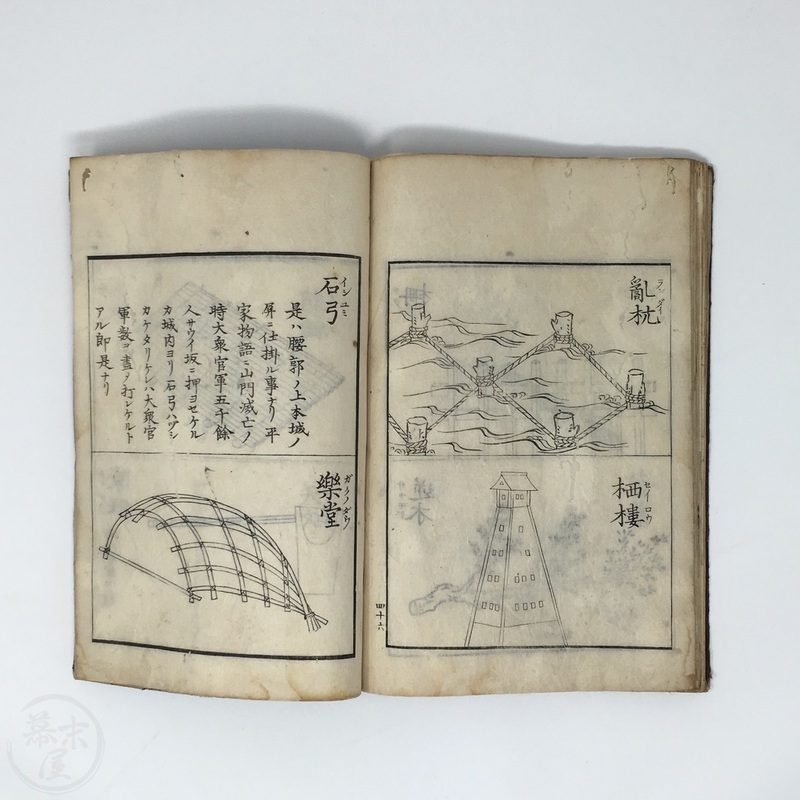 亂杭
ランダイ
栖樓
セイロウ
四十六
石弓
イシユミ
是ハ腰郭ノ上本城ノ
屏ニ仕掛ル事ナリ平
家物語ニ山門滅亡ノ
時大衆官軍五千餘
人サウイ坂ニ押ヨセケル
カ城内ヨリ石弓ハヅシ
カケタリケレハ大衆官
軍数ヲ盡メ打レケルト
アル即是ナリ
樂堂
ガクノダウ
幕末屋